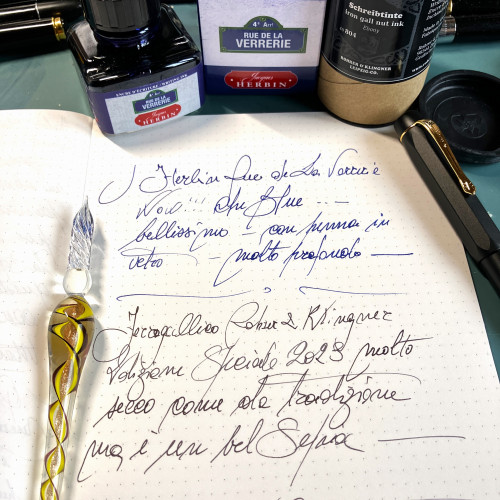 4e Arrt
RUE DE LA
VERRERIE
Jacques
HERBIN
4e Arrt
RUE DE LA
VERRERIE
Jacques
HERBIN
Schreibtinte
Iron gall nut ink
ROHRER & KLINGNER
LEIPZIG-CO.
Herbin Rue de La Verrerie
Wow!!! che Blue
bellissimo - con penna in
vetro - molto profondo
Ferrogallico Rohrer & Klingner
Edizione Speciale 2023 molto
secco come da tradizione
ma è un bel Sepia